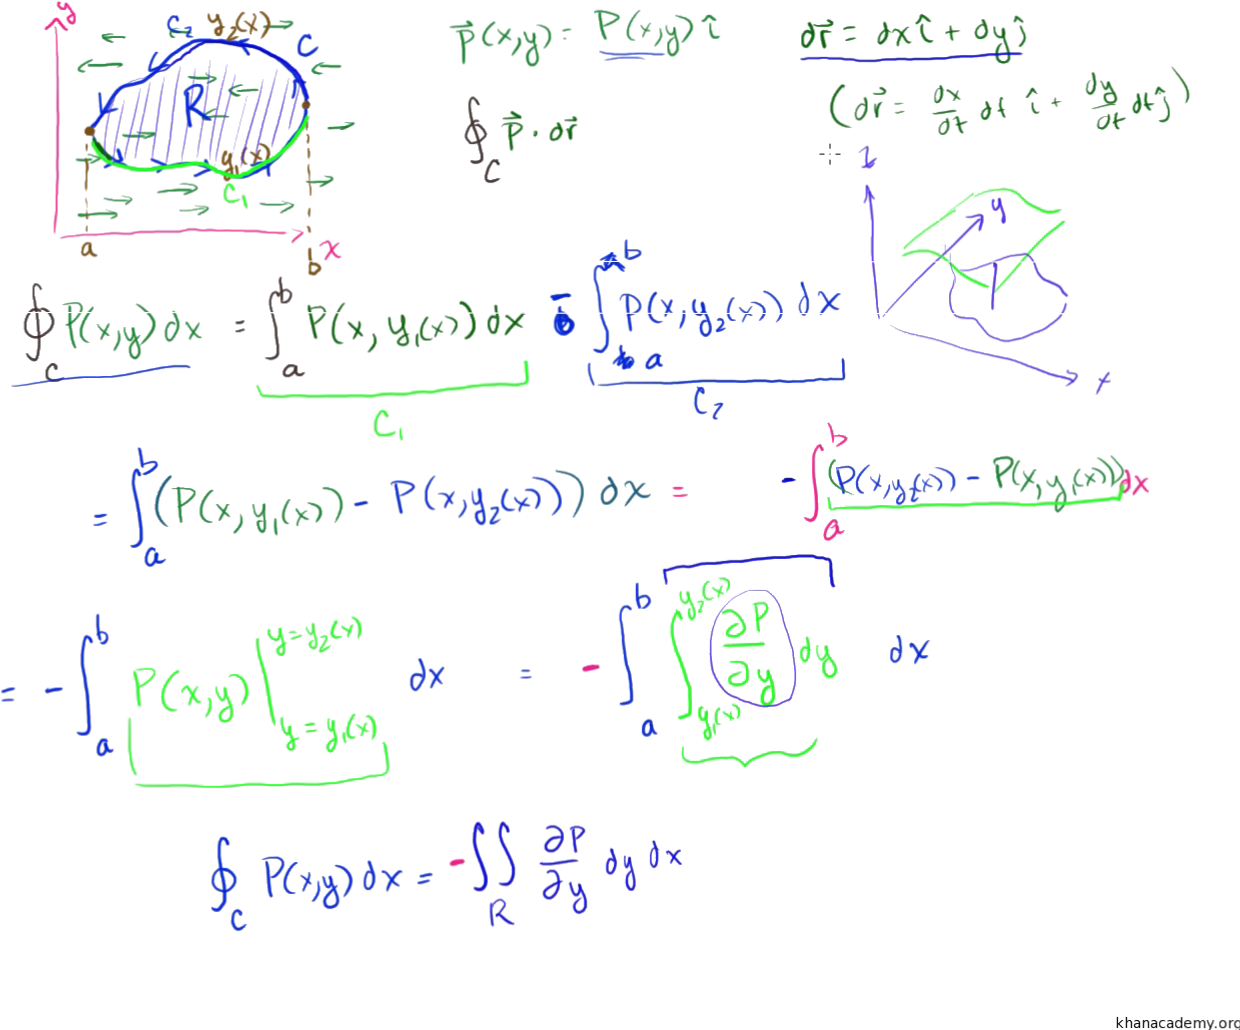 y
C₂ y₂(x) C
R
y₁(x)
C₁
a b x
P⃗(x,y) = P(x,y) î
dr⃗ = dx î + dy ĵ
(dr⃗ = dx/dt dt î + dy/dt dt ĵ)
∮_C P⃗ · dr⃗
z
y
x
∮_C P(x,y) dx = ∫_a^b P(x, y₁(x)) dx - ∫_a^b P(x, y₂(x)) dx
C₁ C₂
= ∫_a^b (P(x, y₁(x)) - P(x, y₂(x))) dx = - ∫_a^b (P(x, y₂(x)) - P(x, y₁(x))) dx
= - ∫_a^b P(x,y) |_{y = y₁(x)}^{y = y₂(x)} dx = - ∫_a^b ∫_{y₁(x)}^{y₂(x)} ∂P/∂y dy dx
∮_C P(x,y) dx = - ∬_R ∂P/∂y dy dx
khanacademy.org